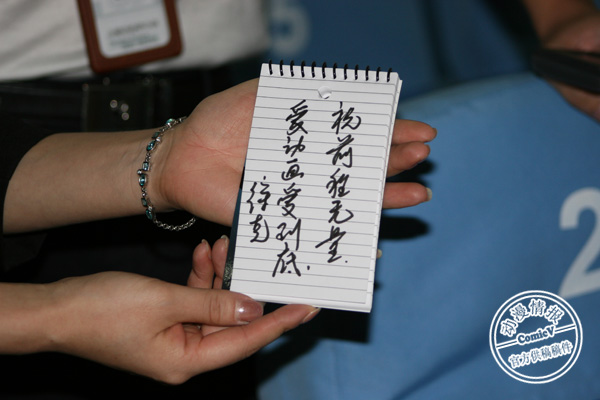 祝前程无量.
爱动画爱到底.
徐克
2
5
动漫情报
ComicV
官方供稿稿件